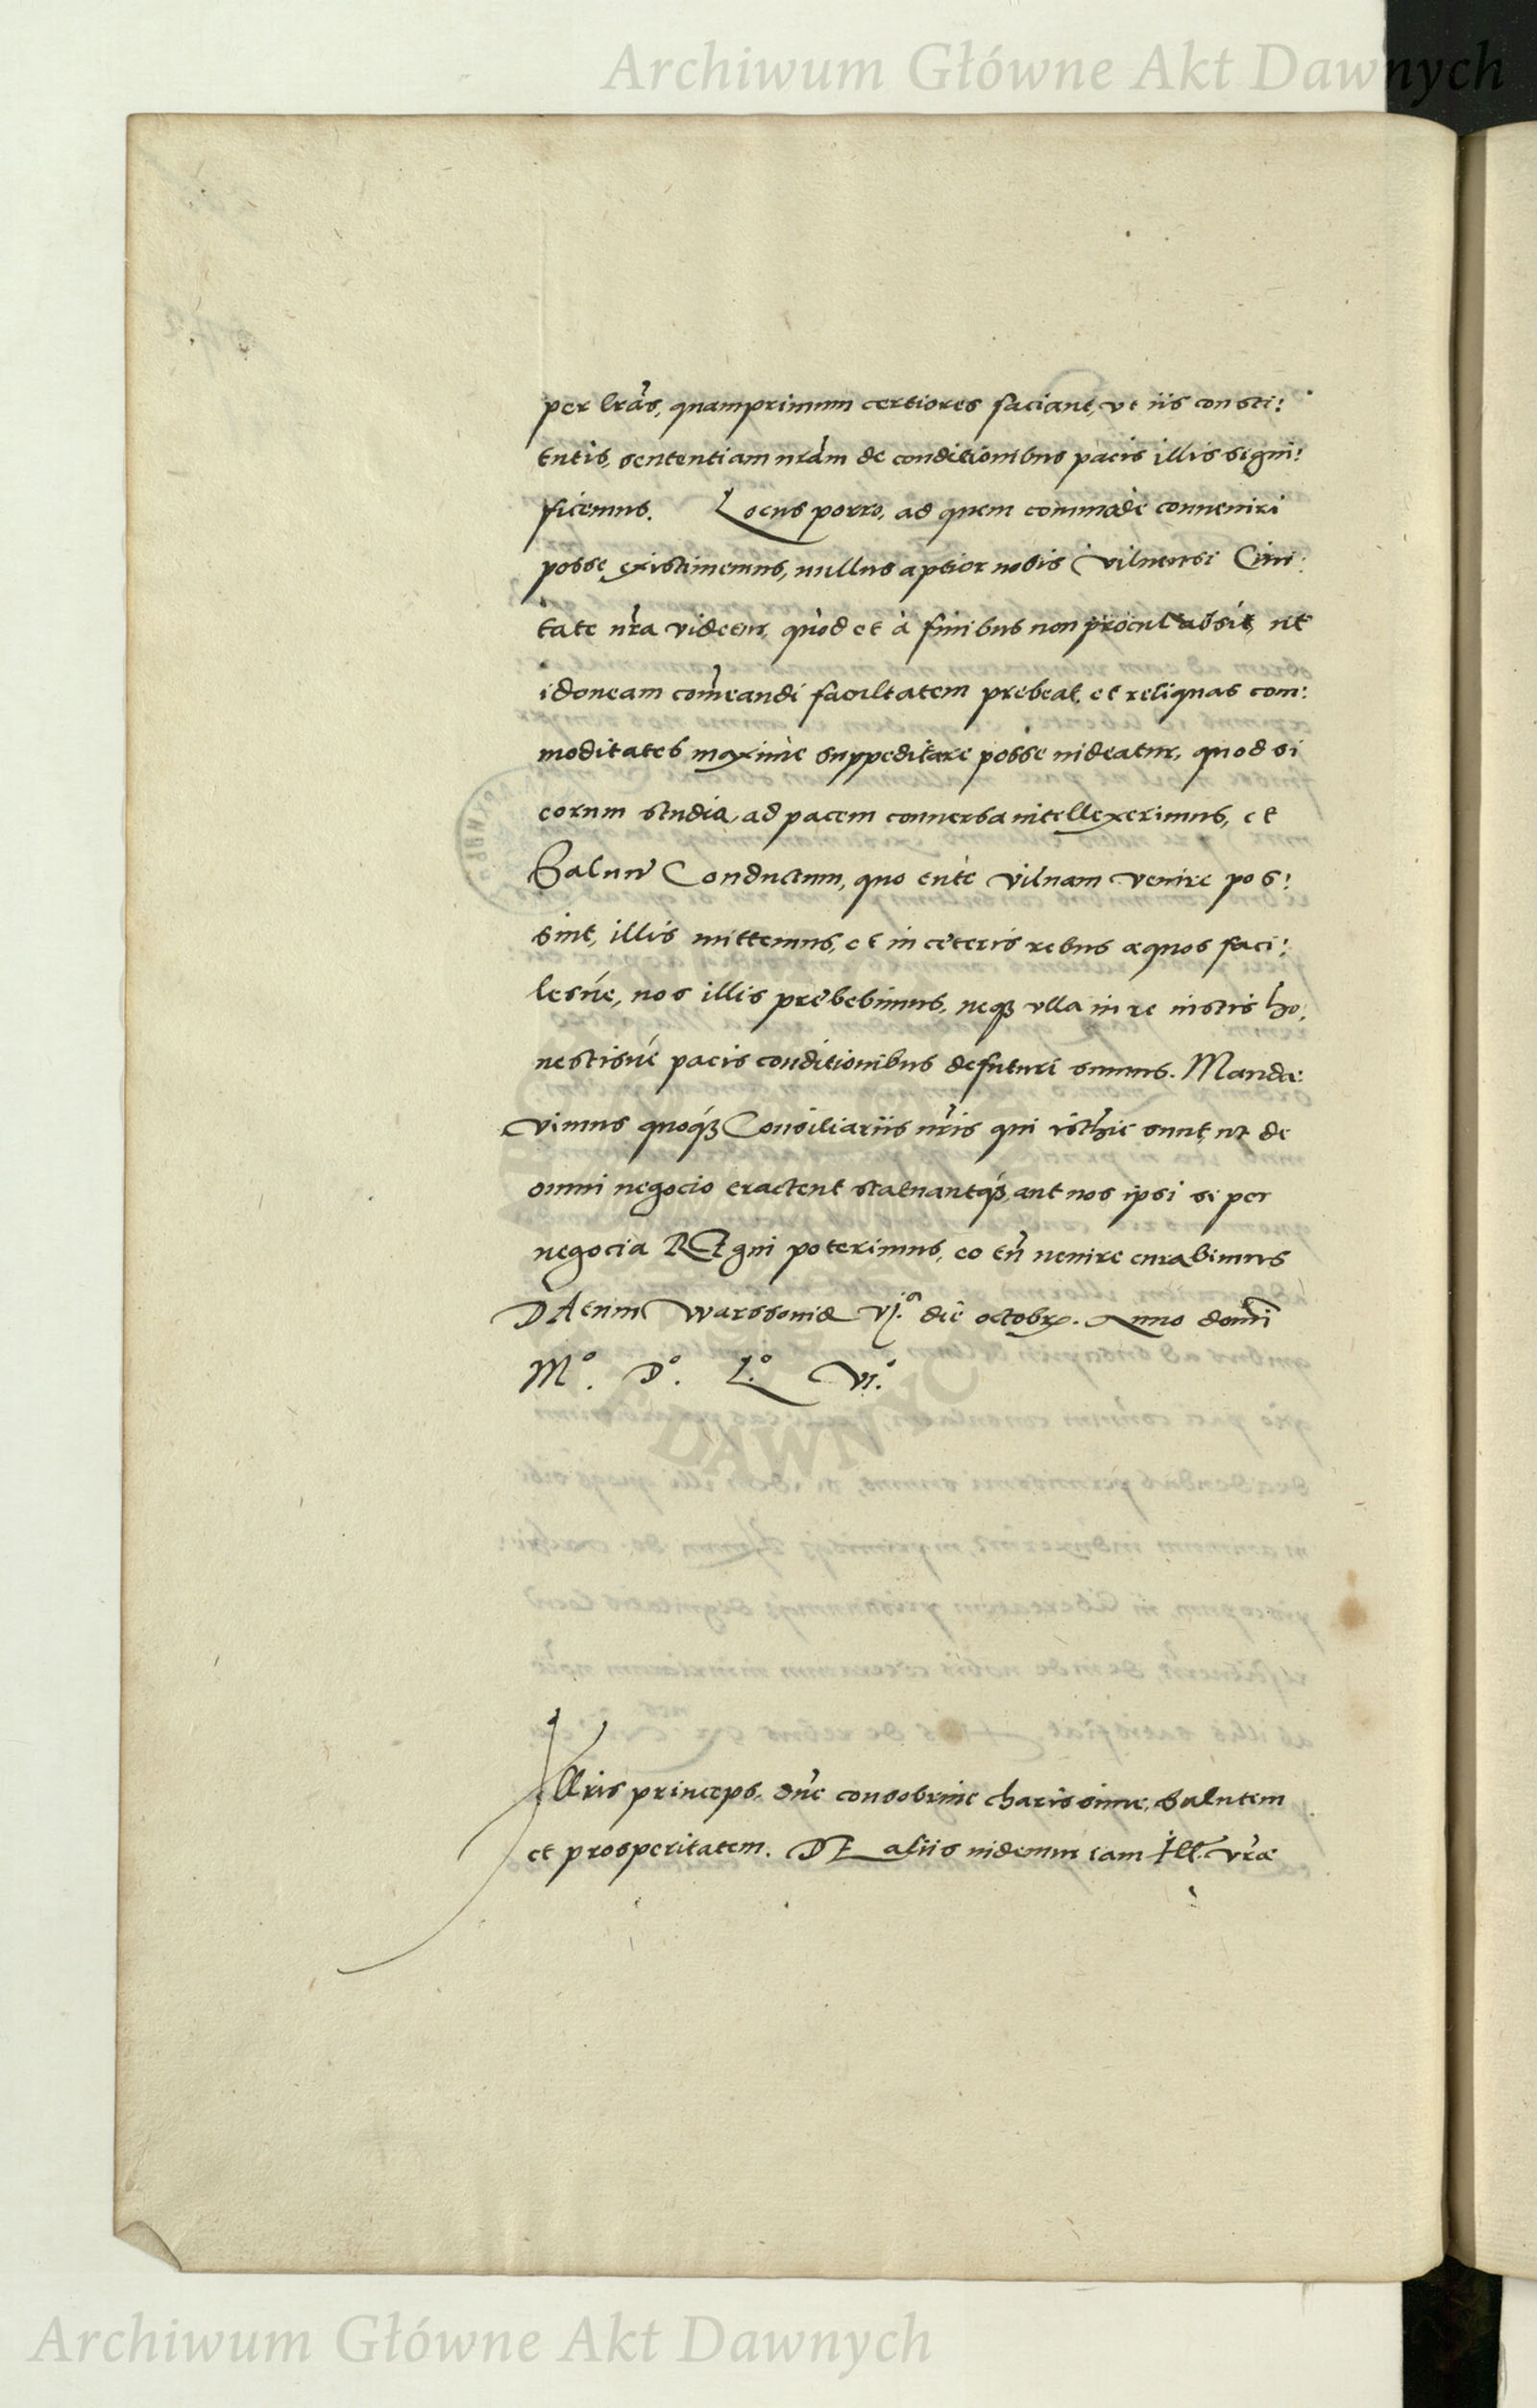 Archiwum Główne Akt Dawnych
per lr̃as, quamprimum certiores faciant, vt iis consti:
tutis, sententiam nr̃am de conditionibus pacis illis signi:
ficemus. Locus porro, ad quem commodè conueniri
posse existimemus, nullus aptior nobis Vilnensi Ciui:
tate nr̃a videtur, quòd et à finibus non procul absit, ut
idoneam com̃eandi facultatem prebeat, et reliquas com:
moditates maxime suppeditare posse uideatur, quod si
eorum studia, ad pacem conuersa intellexerimus, et
Saluũ Conductum, quo tutè Vilnam venire pos:
sint, illis mittemus, et in cęteris rebus æquos faci:
lesúe, nos illis prębebimus, neqꝫ vlla in re iustis ho:
nestisúe pacis conditionibus defuturi sumus. Manda:
vimus quoqꝫ Consiliariis nr̃is qui isthic sunt, ut de
omni negocio tractent statuantqꝫ, aut nos ipsi si per
negocia REgni poterimus, eo tñ uenire curabimus
DAtum Warssouiæ vj.ᵃ die octobr. Anno domĩ
M.º D.º L.º vj.º
Illris princeps, dñe consobrine charissime, Salutem
et prosperitatem. DE aliis uidemur iam Ill. vr̃æ
Archiwum Główne Akt Dawnych